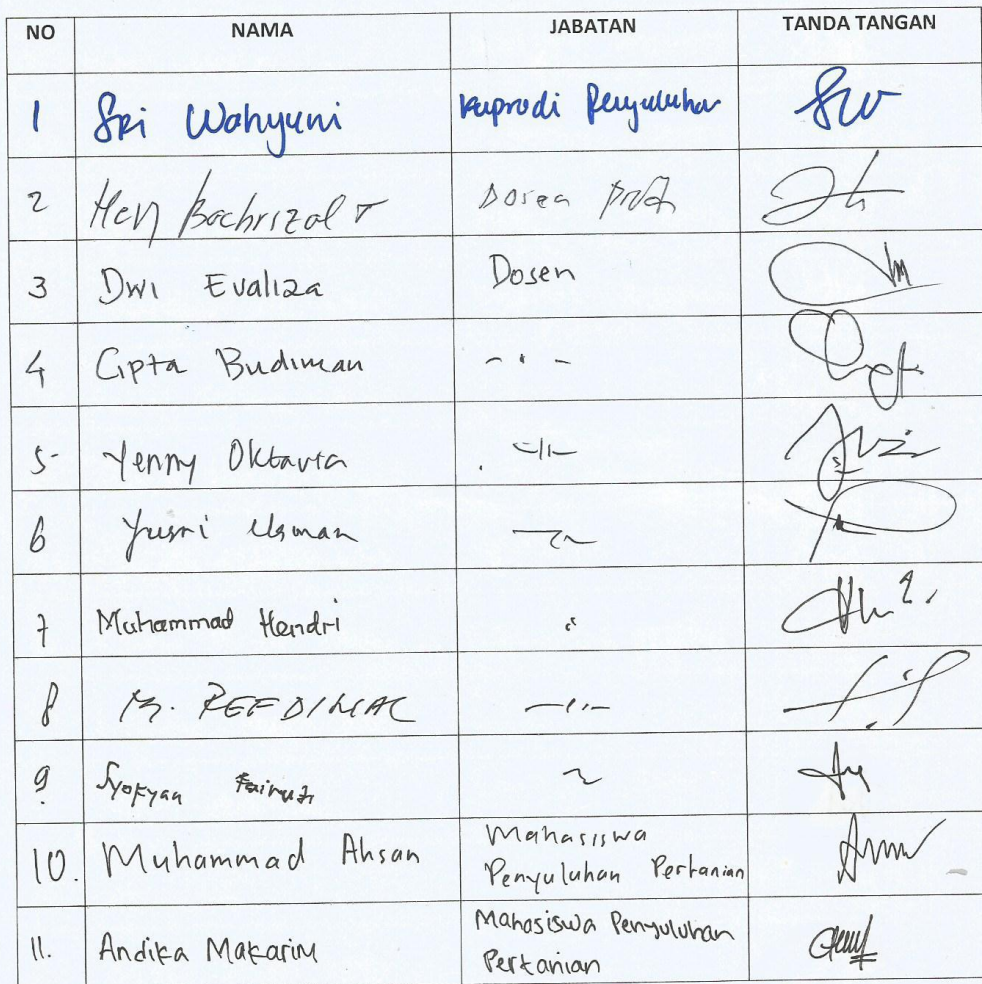 NO NAMA JABATAN TANDA TANGAN
1 Sri Wahyuni Kaprodi Penyuluhan
2 Hery Bachrizal T Dosen
3 Dwi Evaliza Dosen
4 Cipta Budiman - " -
5 Yenny Oktavia -"-
6 Yusri Usman
7 Muhammad Hendri
8 M. REFDINAL -"-
9. Syofyan Fairuzi
10. Muhammad Ahsan Mahasiswa
Penyuluhan Pertanian
11. Andika Makarim Mahasiswa Penyuluhan
Pertanian